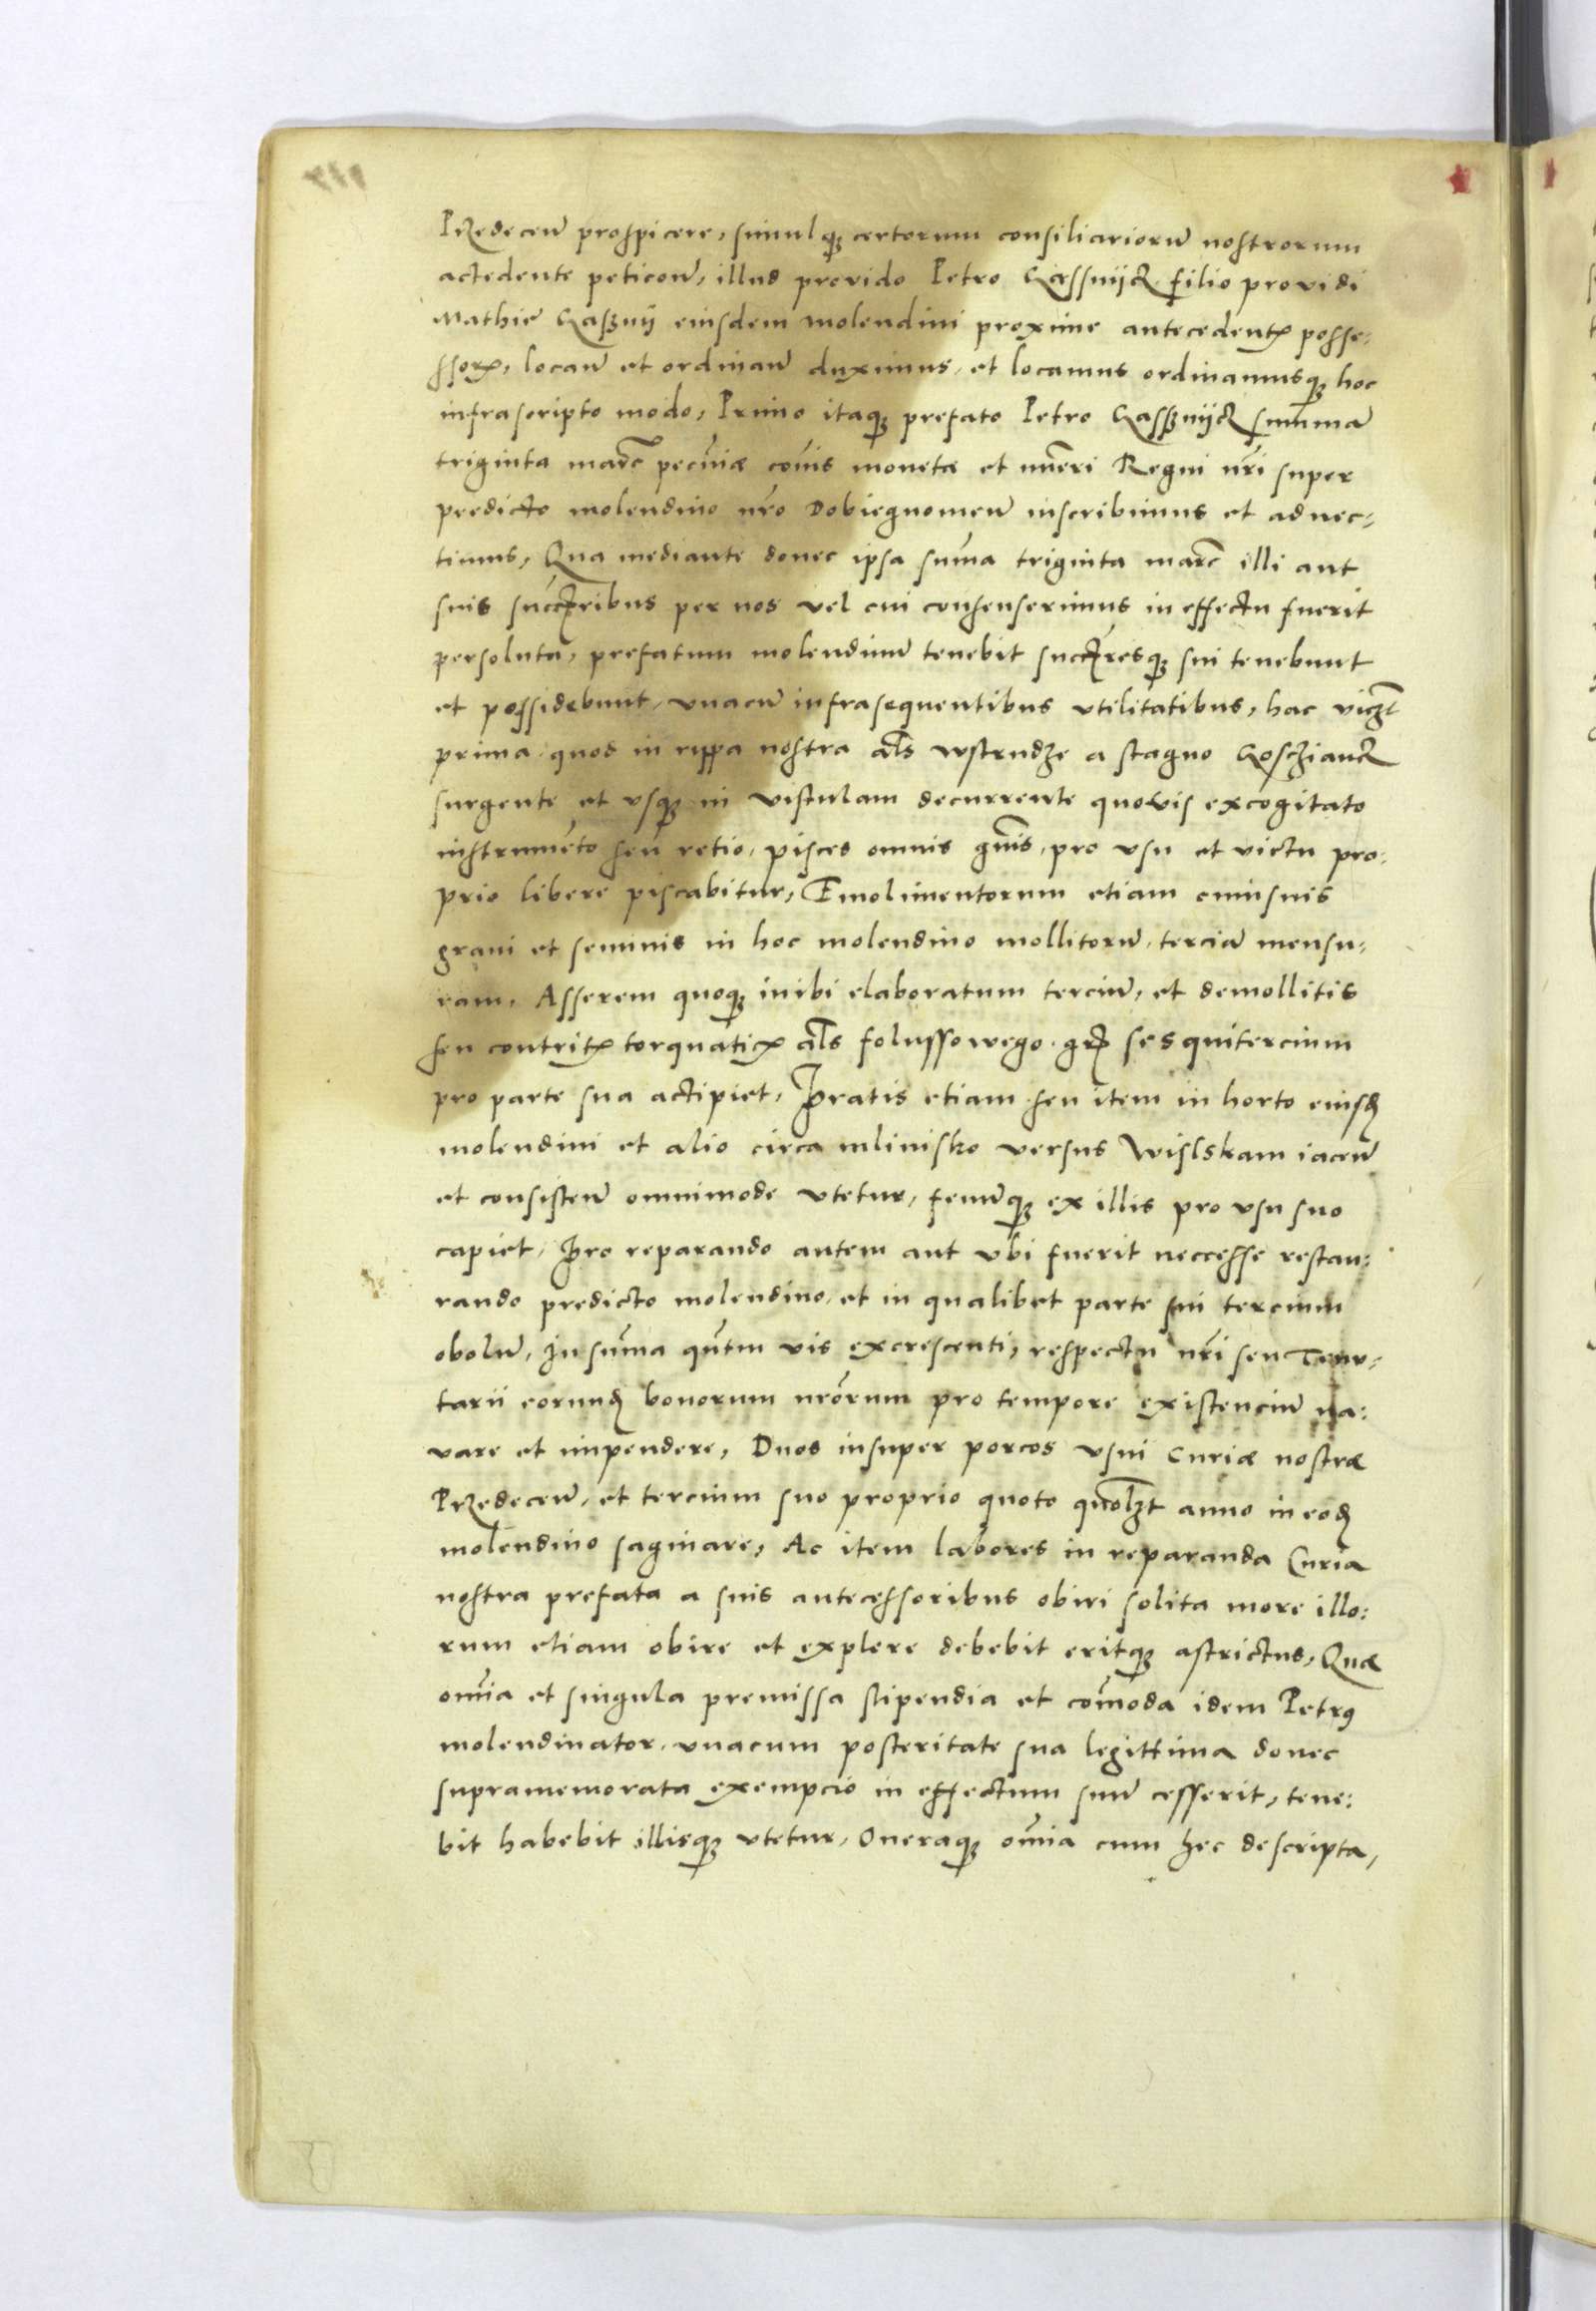 Przedecen̄ prospicere, simulqȝ certorum consiliariorū nostrorum
accedente peticōn̄, illud provido Petro Gassnijck filio providi
Mathie Gassnij eiusdem molendini proxime antecedentꝭ posse:
ssorꝭ, locan̄ et ordinan̄ duximus, et locamus ordinamusqȝ hoc
infrascripto modo, Primo itaqȝ prefato Petro Gassnijck summā
triginta marc̄ pecuniæ cōis monetæ et nūeri Regni nr̄i super
predicto molendino nr̄o Dobiegnomen̄ inscribimus et adnec:
timus, Qua mediante donec ipsa sum̄a triginta marc̄ illi aut
suis succ̄oribus per nos vel cui consenserimus in effectu fuerit
persoluta, prefatum molendinū tenebit succ̄oresqȝ sui tenebunt
et possidebunt, vnacū infrasequentibus vtilitatibus, hac vidzt̄
prima quod in rippa nostra al̄s wstrudze a stagno
surgente et vsqȝ in vistulam decurrente quovis excogitato
instrumēto seu retio, pisces omnis gn̄is, pro vsu et victu pro:
prio libere piscabitur, Emolimentorum etiam cuiusuis
grani et seminis in hoc molendino mollitorū, terciā mensu:
ram, Asserem quoqȝ inibi elaboratum terciū, et demollitis
seu contritꝭ torquaticꝭ al̄s folussowego grꝭ sesquitercium
pro parte sua accipiet, Pratis etiam seu item in horto eiusd
molendini et alio circa mlinisko versus Wislskam iacen̄
et consisten̄ omnimode vtetur, fenūqȝ ex illis pro vsu suo
capiet, Pro reparando autem aut vbi fuerit neccesse restau:
rando predicto molendino, et in qualibet parte sui tercium
obolū, in sum̄a quītm vis excrescenti, respectu nr̄i seu Tenu:
tarii eorund bonorum nrōrum pro tempore existenciū na:
vare et impendere, Duos insuper porcos vsui Curiæ nostræ
Przedecen̄, et tercium suo proprio quoto quolzt̄ anno in eod
molendino saginare, Ac item labores in reparanda Curia
nostra prefata a suis antecessoribus obiri solita more illo:
rum etiam obire et explere debebit eritqȝ astrictus, Quæ
om̄ia et singula premissa stipendia et com̄oda idem Petrꝰ
molendinator, vnacum posteritate sua legittima donec
supramemorata exempcio in effectum suū cesserit, tene:
bit habebit illisqȝ vtetur, Oneraqȝ om̄ia cum hec descripta,